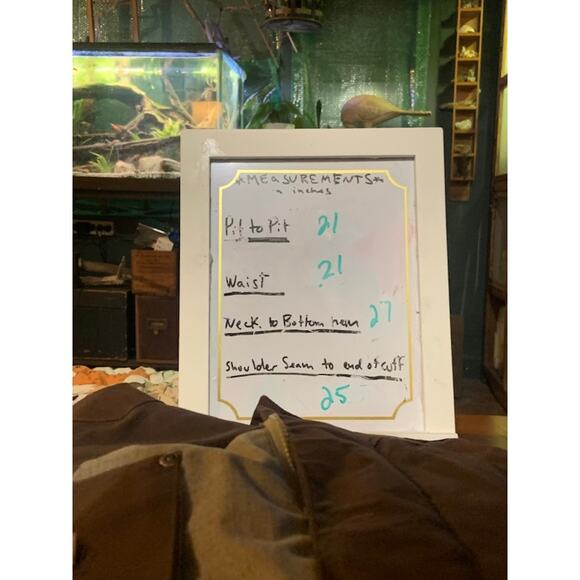 *MEaSUREMENTS*
in inches
Pit to Pit 21
Waist 21
Neck to Bottom hem 27
Shoulder Seam to end of cuff
25